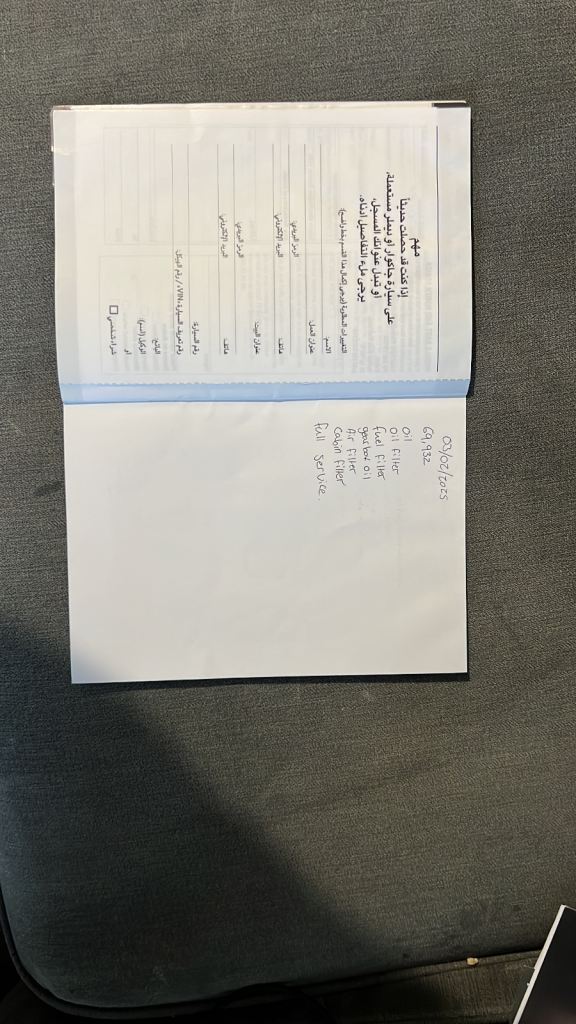 مهم
إذا كنت قد حصلت حديثاً
على سيارة جاكوار أو ديملر مستعملة،
أو تبدل عنوانك المسجل،
يرجى ملء التفاصيل أدناه.
التغييرات المطلوبة (يرجى إكمال هذا القسم بخط واضح):
الاسم:
عنوان العمل:
الرمز البريدي:
هاتف:
البريد الإلكتروني:
عنوان البيت:
الرمز البريدي:
هاتف:
البريد الإلكتروني:
رقم السيارة:
رقم تعريف السيارة VIN، / رقم الهيكل:
البائع:
الوكيل (اسم):
أو
شراء شخصي
03/02/2025
69,932
Oil
Oil filter
fuel filter
gearbox oil
Air filter
Cabin filter
full service.